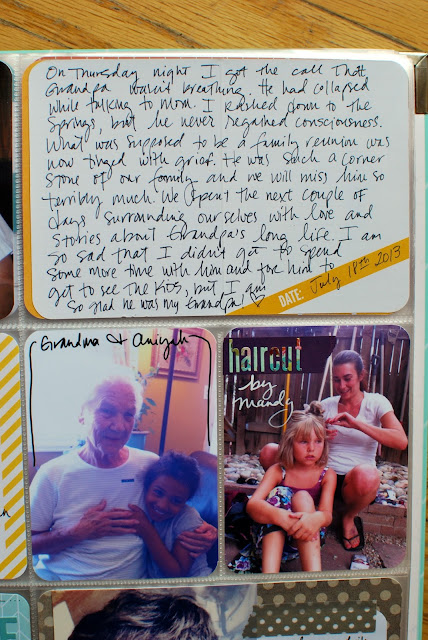 On Thursday night I got the call that
Grandpa wasn't breathing. He had collapsed
while talking to mom. I rushed down to the
Springs, but he never regained consciousness.
What was supposed to be a family reunion was
now tinged with grief. He was such a corner
stone of our family and we will miss him so
terribly much. We spent the next couple of
days surrounding ourselves with love and
stories about Grandpa's long life. I am
so sad that I didn't get to spend
some more time with him and for him to
get to see the kits, but I am
so glad he was my Grandpa!
DATE: July 18th 2013
Grandma & Aniyah
haircut
by
mandy